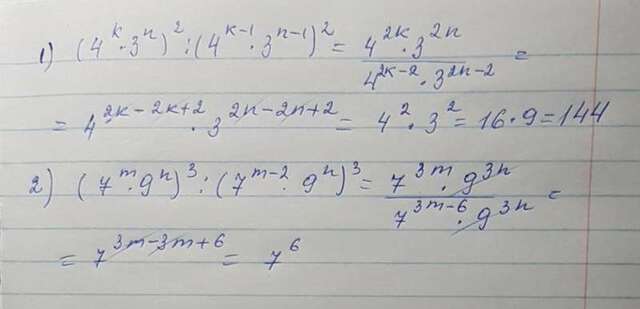 1) (4^k · 3^n)^2 : (4^(k-1) · 3^(n-1))^2 = (4^(2k) · 3^(2n)) / (4^(2k-2) · 3^(2n-2)) =
= 4^(2k-2k+2) · 3^(2n-2n+2) = 4^2 · 3^2 = 16 · 9 = 144
2) (7^m · 9^n)^3 : (7^(m-2) · 9^n)^3 = (7^(3m) · 9^(3n)) / (7^(3m-6) · 9^(3n)) =
= 7^(3m-3m+6) = 7^6